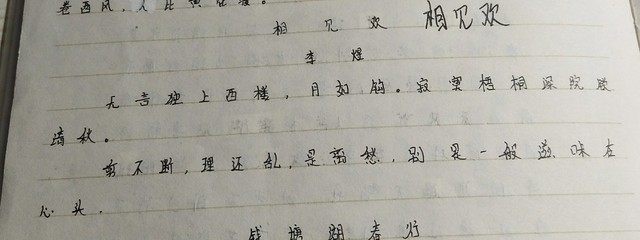 卷西风，人比黄花瘦。
相见欢 相见欢
李煜
无言独上西楼，月如钩。寂寞梧桐深院锁
清秋。
剪不断，理还乱，是离愁，别是一般滋味在
心头.
钱塘湖春行